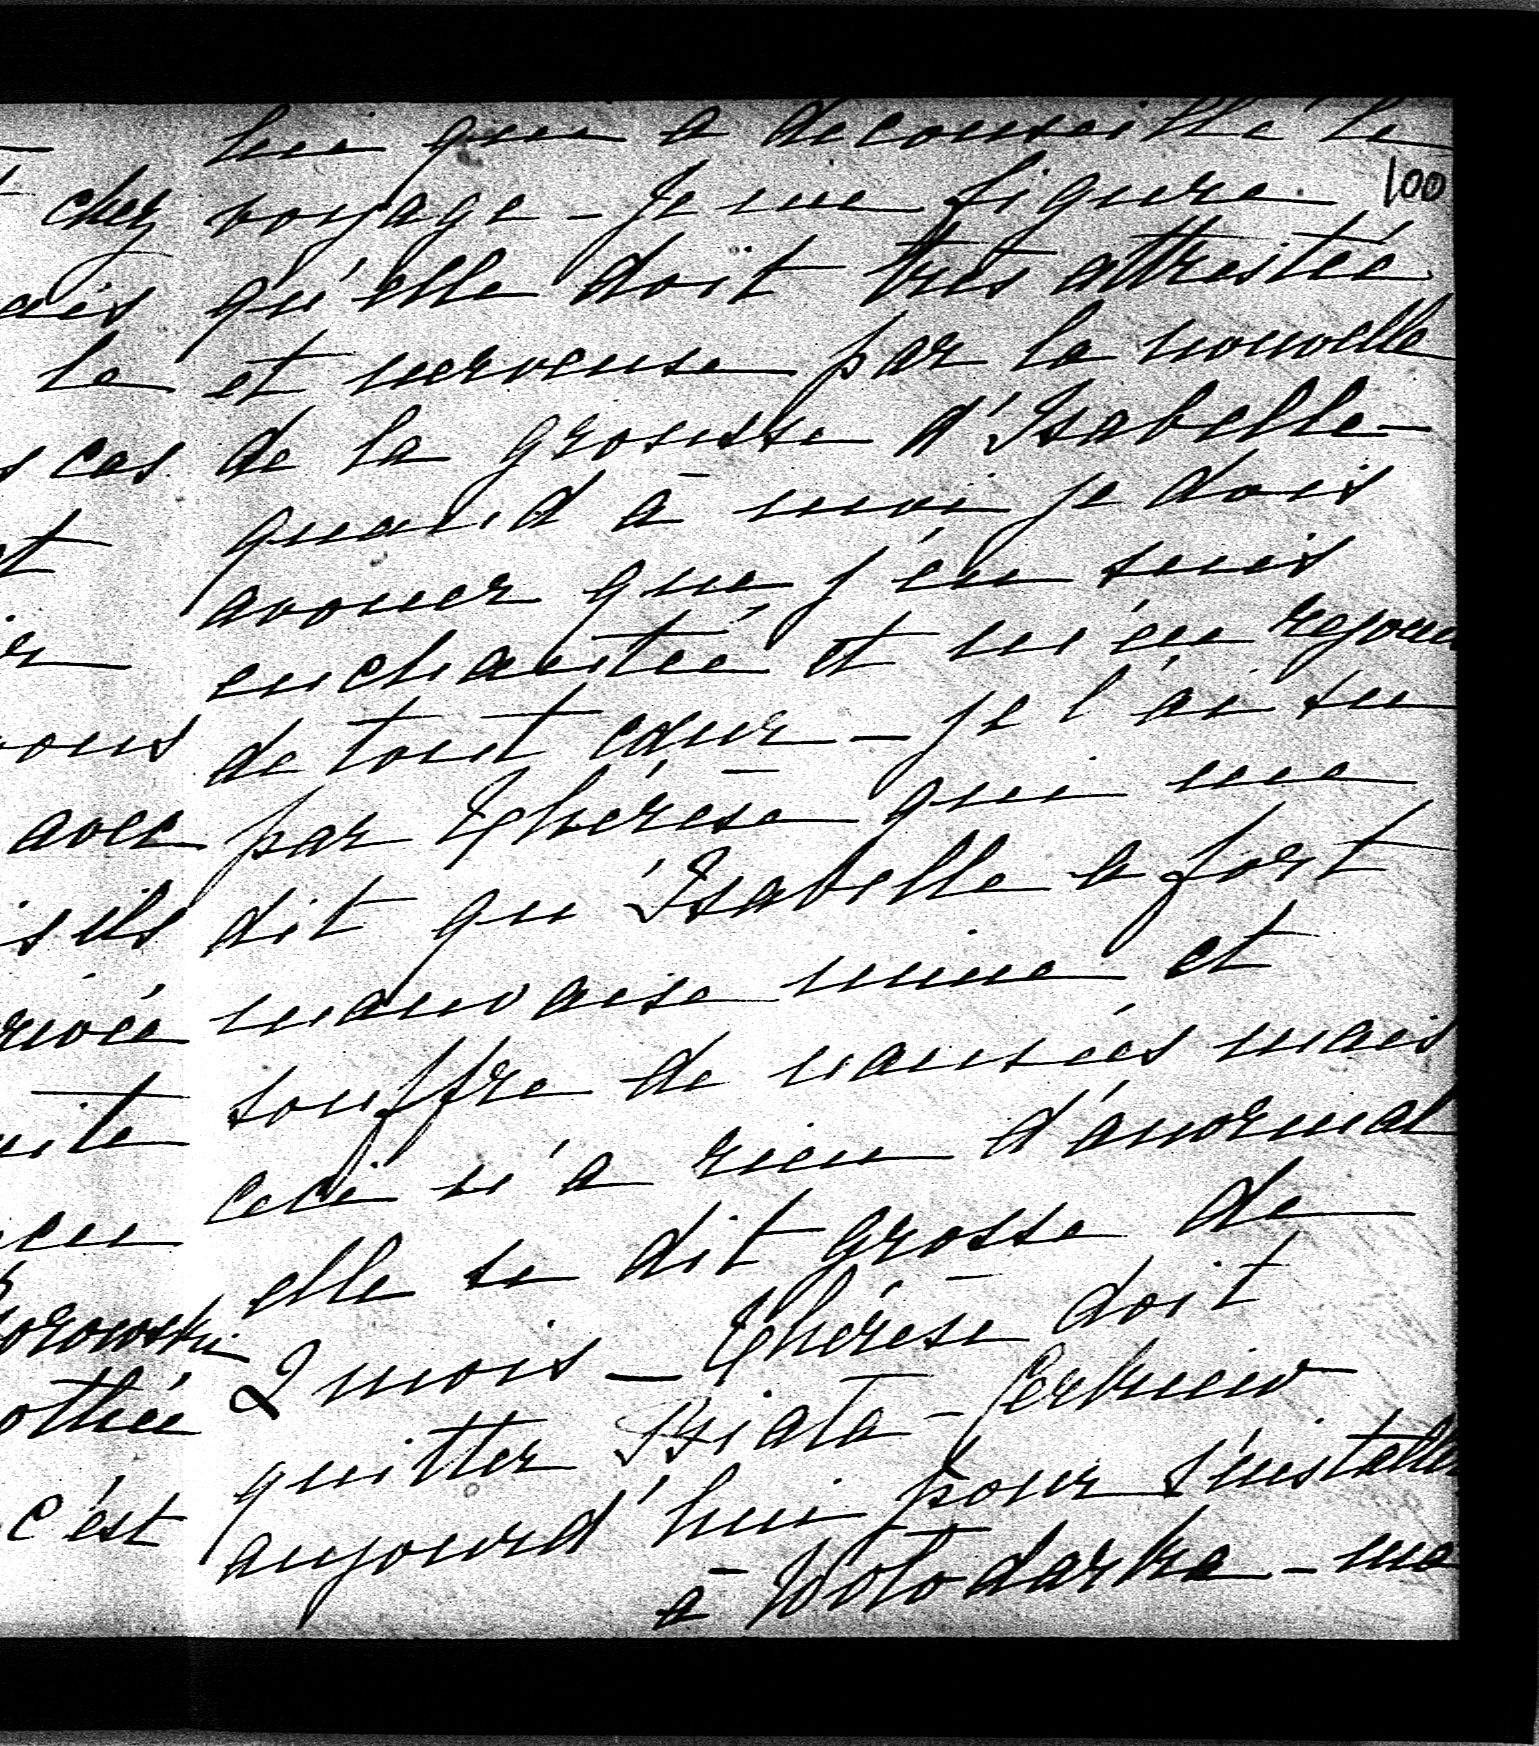 lui que a deconseillé le
100
chez voyage - Je me figure
ais qu'elle doit très attristée
le et nerveuse par la nouvelle
s cas de la grosesse d'Isabelle -
quand à moi je dois
avouer que j'en suis
enchantée et m'en rejoui
vous de tout cœur - je l'ai su
avec par Thérèse qui me
s ils dit qu'Isabelle a fort
rivée mauvaise mine et
souffre de nausées mais
uite ceci n'a rien d'anormal
elle se dit grosse de
orowski 2 mois - Thérèse doit
othée quitter Biała - Cerkiew
c'est aujourd'hui pour s'installer
à Wołodarka - ma